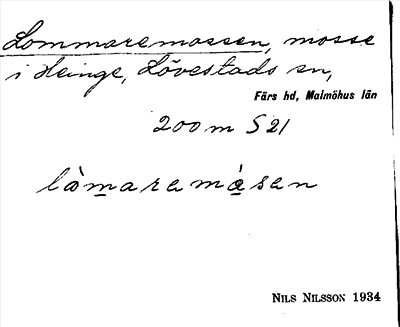 Lommaremossen, mosse
i Heinge, Lövestads sn,
Färs hd, Malmöhus län
200 m S 21
làmaremåsen
NILS NILSSON 1934